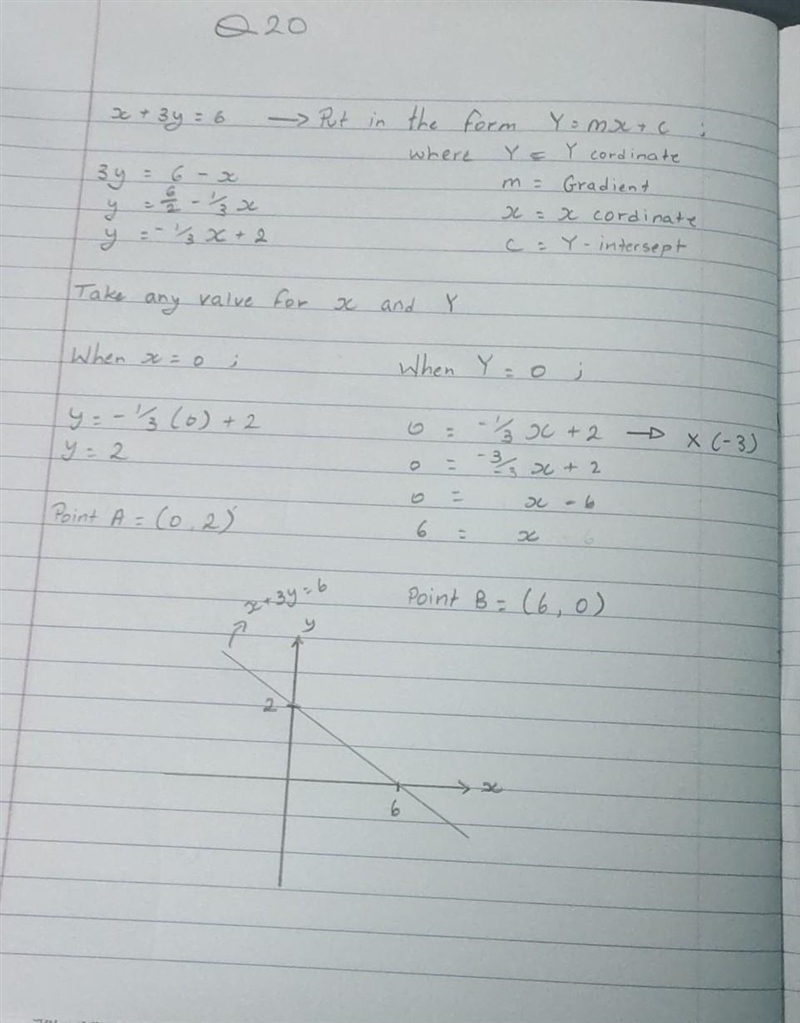 Q20
x + 3y = 6 → Put in the form Y = mx + c ;
where Y = Y cordinate
3y = 6 - x
m = Gradient
y = 6/2 - 1/3 x
x = x cordinate
y = -1/3 x + 2
c = Y-intersept
Take any value for x and Y
When x = 0 ;
y = -1/3 (0) + 2
y = 2
Point A = (0, 2)
When Y = 0 ;
0 = -1/3 x + 2 → × (-3)
0 = -3/-3 x + 2
0 = x - 6
6 = x
Point B = (6, 0)
x + 3y = 6
y
2
x
6